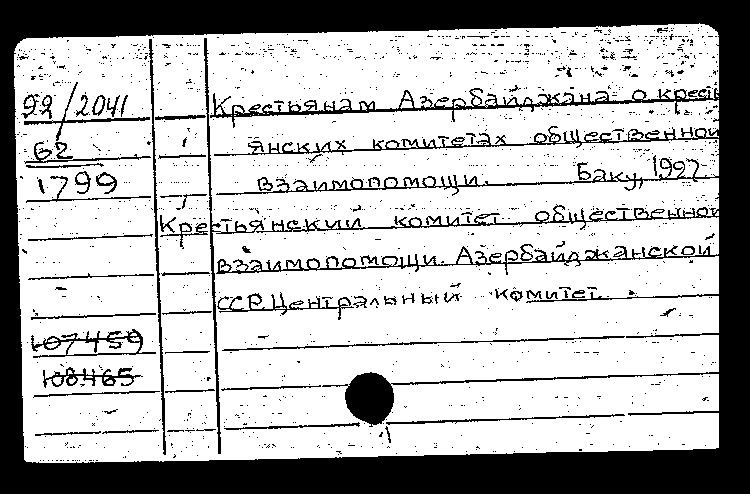 92/2041
62
1799
Крестьянам Азербайджана о кресть
янских комитетах общественной
взаимопомощи. Баку, 1927
Крестьянский комитет общественной
взаимопомощи. Азербайджанской
ССР. Центральный комитет.
107459
108465